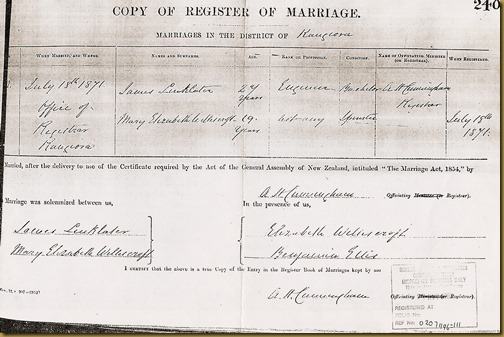 248
COPY OF REGISTER OF MARRIAGE.
MARRIAGES IN THE DISTRICT OF Rangiora
WHEN MARRIED, AND WHERE. NAMES AND SURNAMES. AGE. RANK OR PROFESSION. CONDITION. NAME OF OFFICIATING MINISTER (OR REGISTRAR). WHEN REGISTERED.
July 18th 1871 James Linklater 24 years Engineer Bachelor A H Cunningham Registrar
Office of Registrar Rangiora Mary Elizabeth Wethescroft 19 years not any Spinster July 18th 1871.
Married, after the delivery to me of the Certificate required by the Act of the General Assembly of New Zealand, intituled "The Marriage Act, 1854," by
A H Cunningham Officiating Minister (or Registrar).
Marriage was solemnized between us, In the presence of us,
James Linklater Elizabeth Wethescroft
Mary Elizabeth Wethescroft Benjamin Ellis
I CERTIFY that the above is a true Copy of the Entry in the Register Book of Marriages kept by me
A. H. Cunningham Officiating Minister (or Registrar).
REGISTERED AT
REF No